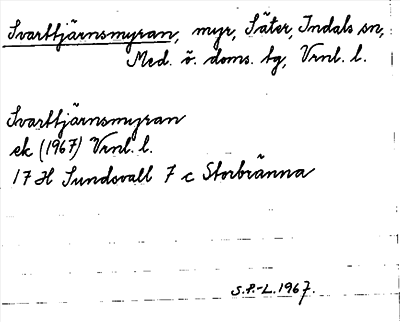 Svarttjärnsmyran, myr, Säter, Indals sn,
Med. ö. doms. tg, Vrnl. l.
Svarttjärnsmyran
ek (1967) Vrnl. l.
17 H Sundsvall 7 c Storbränna
S.P.-L. 1967.